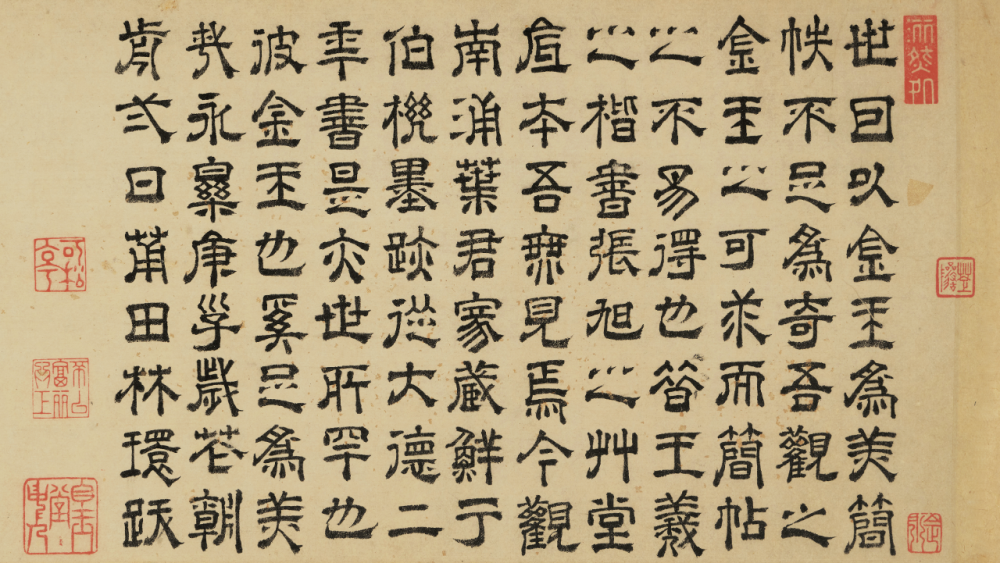 世以金玉為美簡
帙不足為奇吾觀之
金玉之可求而簡帖
之不易得也昔王羲
之楷書張旭之艸堂
本吾無見焉今觀
南浦葉君家藏鮮于
伯機墨跡從大德二
年書是亦世所罕也
彼金玉也奚足為美
哉永樂庚子歲花朝
前弍日莆田林環跋